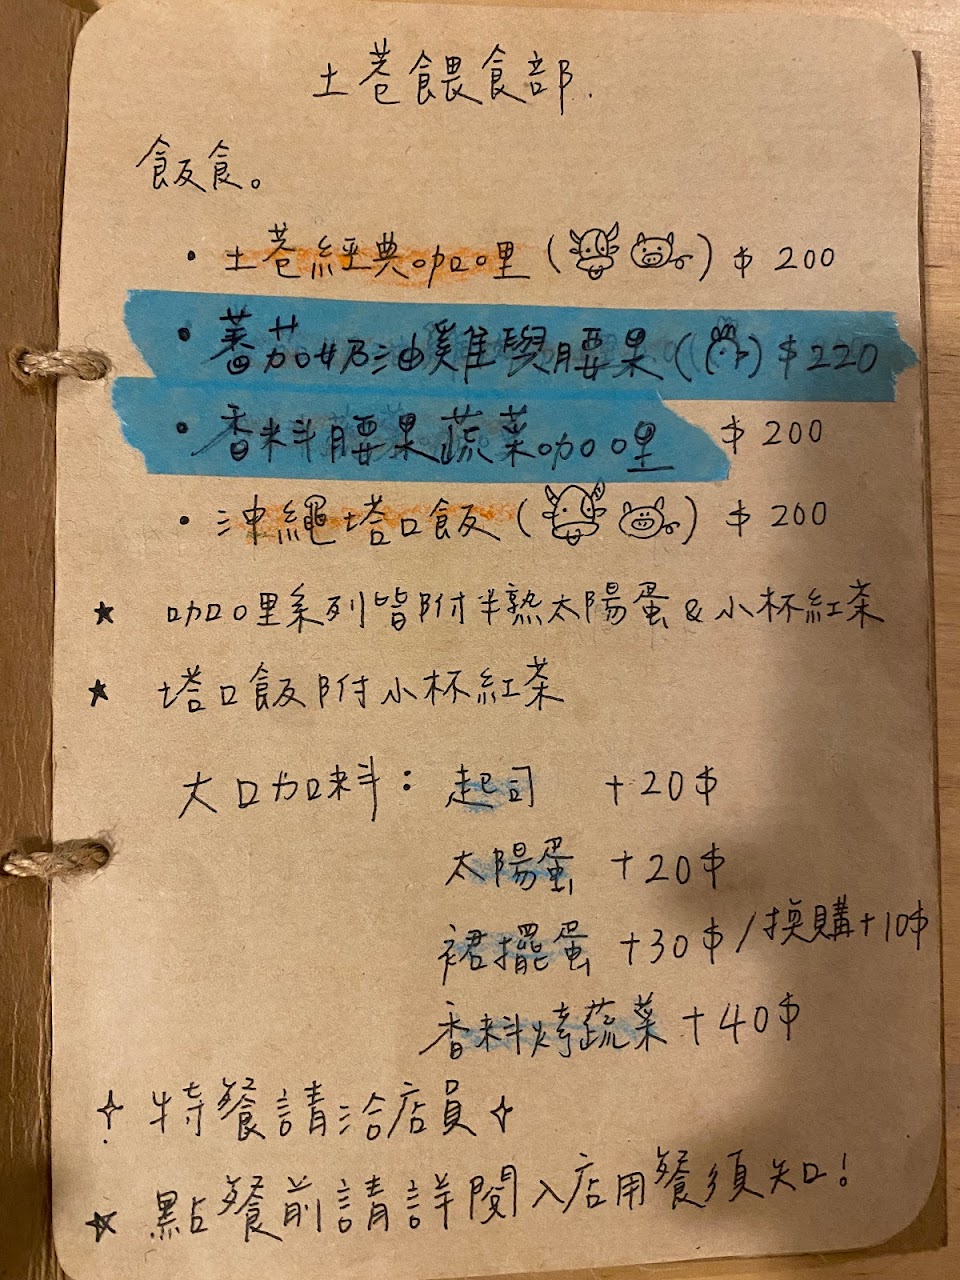 土巷餵食部.
飯食。
• 土巷經典咖哩 ( ) $ 200
• 蕃茄奶油雞與腰果 ( ) $ 220
• 香料腰果蔬菜咖哩 $ 200
• 沖繩塔口飯 ( ) $ 200
★ 咖哩系列皆附半熟太陽蛋 & 小杯紅茶
★ 塔口飯附小杯紅茶
大口加料： 起司 +20$
太陽蛋 +20$
裙擺蛋 +30$ / 換購+10$
香料烤蔬菜 +40$
✧ 特餐請洽店員 ✧
★ 點餐前請詳閱入店用餐須知!